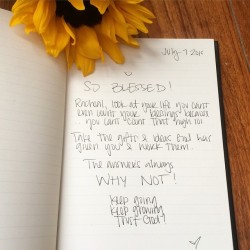 July 7 2011
SO BLESSED!
Rachael, look at your life you can't
even count your blessings because
you can't count that high lol
Take the gifts & ideas God has
given you & work them.
The answers always
WHY NOT!
keep going
keep growing
Trust God!